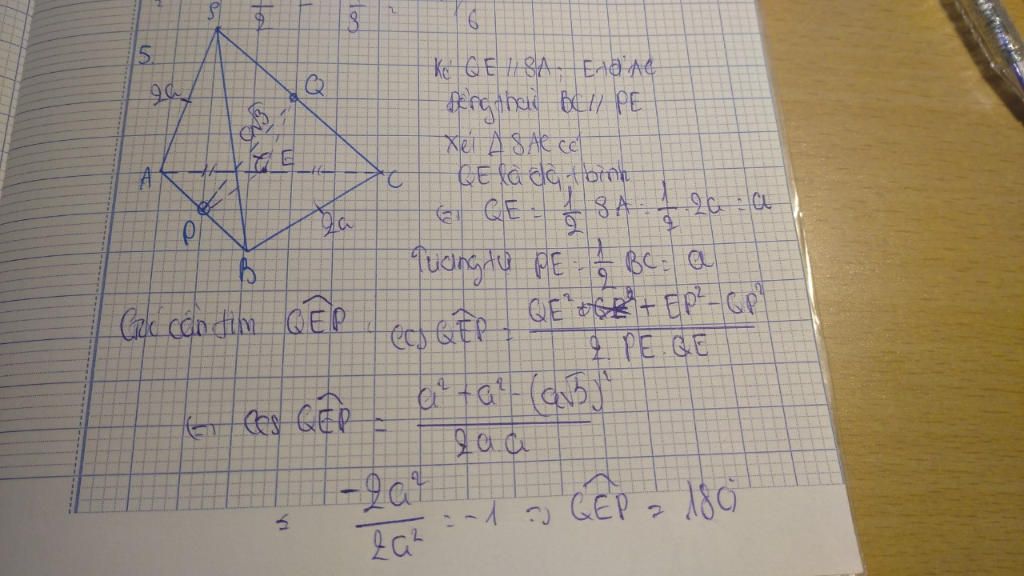 5.
S
2a
Q
a√3
E
A
C
P
2a
B
Kẻ QE // SA. E∈AC
Đồng thời BC // PE
Xét Δ SAC có
QE là đg t bình
⇔ QE = 1/2 SA = 1/2 . 2a = a
Tương tự PE = 1/2 BC = a
Góc cần tìm QEP. cos QEP = (QE² + EP² - QP²) / (2 PE. QE)
⇔ cos QEP = (a² + a² - (a√3)²) / (2a.a)
= -2a² / 2a² = -1 ⇒ QEP = 180